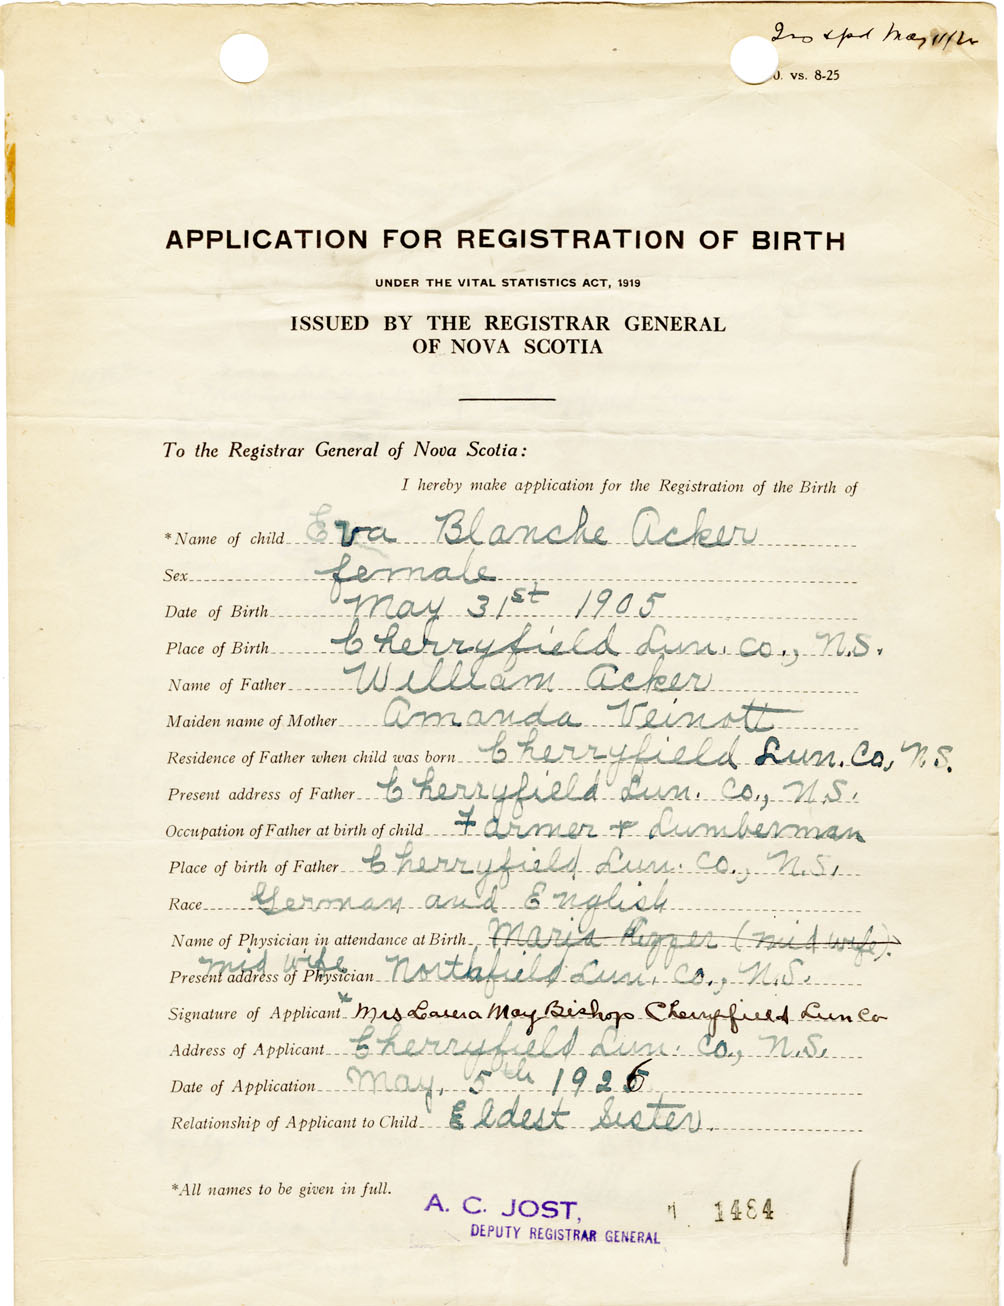 May 11/26
0. vs. 8-25
APPLICATION FOR REGISTRATION OF BIRTH
UNDER THE VITAL STATISTICS ACT, 1919
ISSUED BY THE REGISTRAR GENERAL
OF NOVA SCOTIA
To the Registrar General of Nova Scotia:
I hereby make application for the Registration of the Birth of
*Name of child Eva Blanche Acker
Sex female
Date of Birth May 31st 1905
Place of Birth Cherryfield Lun. Co., N.S.
Name of Father William Acker
Maiden name of Mother Amanda Veinott
Residence of Father when child was born Cherryfield Lun. Co., N.S.
Present address of Father Cherryfield Lun. Co., N.S.
Occupation of Father at birth of child Farmer & Lumberman
Place of birth of Father Cherryfield Lun. Co., N.S.
Race German and English
Name of Physician in attendance at Birth Maria (mid wife).
mid wife
Present address of Physician Northfield Lun. Co., N.S.
Signature of Applicant * Mrs May Bishop Cherryfield Lun Co
Address of Applicant Cherryfield Lun. Co., N.S.
Date of Application May, 5th 1926
Relationship of Applicant to Child Eldest Sister.
*All names to be given in full.
A. C. JOST,
DEPUTY REGISTRAR GENERAL
1484